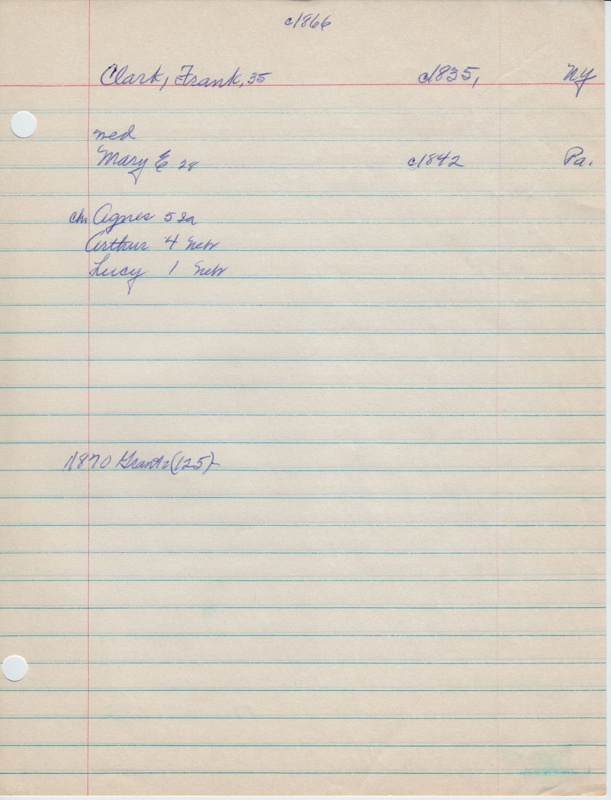 c1866
Clark, Frank, 35 c1835, NY
med
Mary E 28 c1842 Pa.
chn Agnes 5 Ia
Arthur 4 Nebr
Lucy 1 Nebr
1870 (125)